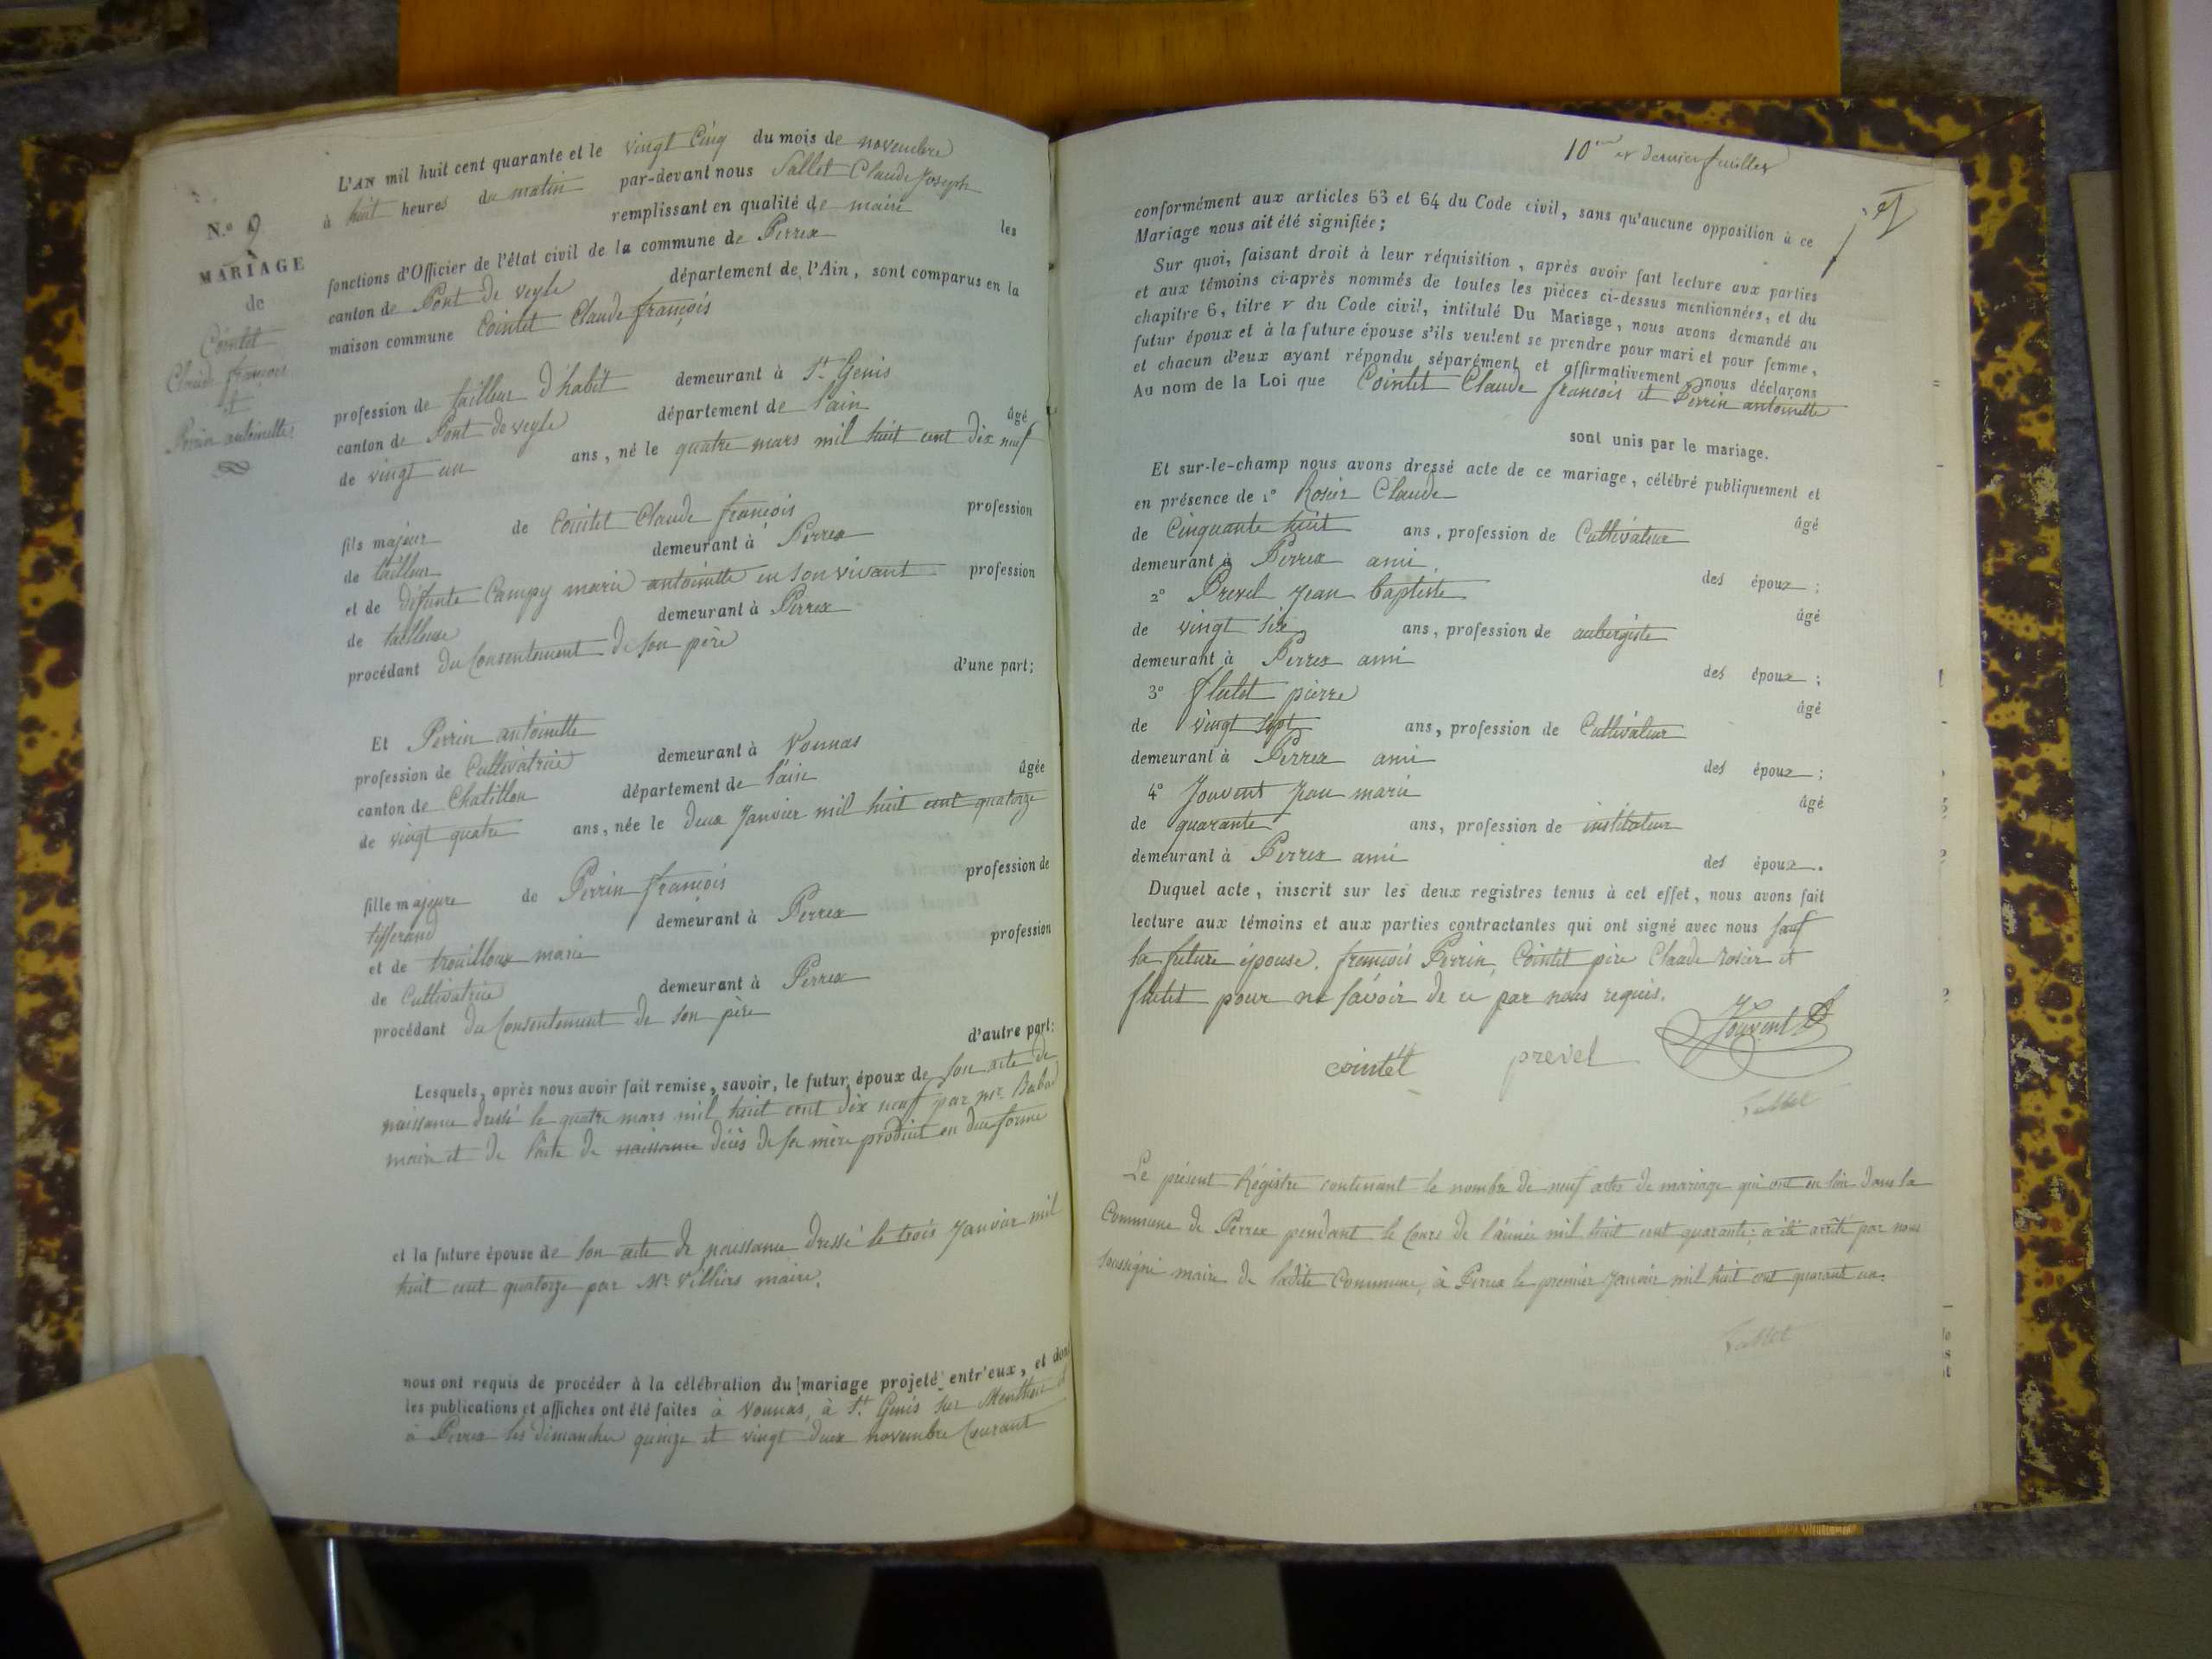 L'AN mil huit cent quarante et le vingt Cinq du mois de novembre
à huit heures du matin par-devant nous Sallet Claude Joseph
remplissant en qualité de maire les
fonctions d'Officier de l'état civil de la commune de Perrex
canton de Pont de veyle département de l'Ain, sont comparus en la
maison commune Cointet Claude françois
N.o 9
MARIAGE
de
Cointet
Claude françois
et
Perrin antoinette
profession de tailleur d'habit demeurant à St. Genis
canton de Pont de veyle département de l'ain âgé
de vingt un ans, né le quatre mars mil huit cent dix neuf
fils majeur de Cointet Claude françois profession
de tailleur demeurant à Perrex
et de défunte Campy marie antoinette en son vivant profession
de tailleuse demeurant à Perrex
procédant du Consentement de son père d'une part;
Et Perrin antoinette
profession de Cultivatrice demeurant à Vonnas
canton de Chatillon département de l'ain âgée
de vingt quatre ans, née le deux Janvier mil huit cent quatorze
fille majeure de Perrin françois profession de
tisserand demeurant à Perrex
et de trouilloux marie profession
de Cultivatrice demeurant à Perrex
procédant du Consentement de son père d'autre part:
Lesquels, après nous avoir fait remise, savoir, le futur époux de son acte de
naissance dressé le quatre mars mil huit cent dix neuf par mr.
maire et de l'acte de naissance décès de sa mère produit en due forme
et la future épouse de son acte de naissance dressé le trois Janvier mil
huit cent quatorze par Mr. Villiers maire.
nous ont requis de procéder à la célébration du mariage projeté entr'eux, et dont
les publications et affiches ont été faites à Vonnas, à St. Genis sur Menthon et
à Perrex les dimanches quinze et vingt deux novembre Courant
10eme et dernier feuillet
conformément aux articles 63 et 64 du Code civil, sans qu'aucune opposition à ce
Mariage nous ait été signifiée;
Sur quoi, faisant droit à leur réquisition, après avoir fait lecture aux parties
et aux témoins ci-après nommés de toutes les pièces ci-dessus mentionnées, et du
chapitre 6, titre v du Code civil, intitulé Du Mariage, nous avons demandé au
futur époux et à la future épouse s'ils veulent se prendre pour mari et pour femme,
et chacun d'eux ayant répondu séparément et affirmativement, nous déclarons
Au nom de la Loi que Cointet Claude françois et Perrin antoinette
sont unis par le mariage.
Et sur-le-champ nous avons dressé acte de ce mariage, célébré publiquement et
en présence de 1o Rosier Claude âgé
de Cinquante huit ans, profession de Cultivateur
demeurant à Perrex ami des époux;
2o Prevel Jean baptiste âgé
de vingt six ans, profession de aubergiste
demeurant à Perrex ami des époux;
3o flutet pierre âgé
de vingt sept ans, profession de Cultivateur
demeurant à Perrex ami des époux;
4o Jouvent Jean marie âgé
de quarante ans, profession de instituteur
demeurant à Perrex ami des époux.
Duquel acte, inscrit sur les deux registres tenus à cet effet, nous avons fait
lecture aux témoins et aux parties contractantes qui ont signé avec nous sauf
la future épouse. françois Perrin, Cointet père Claude rosier et
flutet pour ne savoir de ce par nous requis.
cointet prevel Jouvent
Sallet
Le présent Régistre contenant le nombre de neuf actes de mariage qui ont eu lieu dans la
Commune de Perrex pendant le Cours de l'année mil huit cent quarante; a été arrêté par nous
soussigné maire de ladite Commune, à Perrex le premier Janvier mil huit cent quarante un.
Sallet